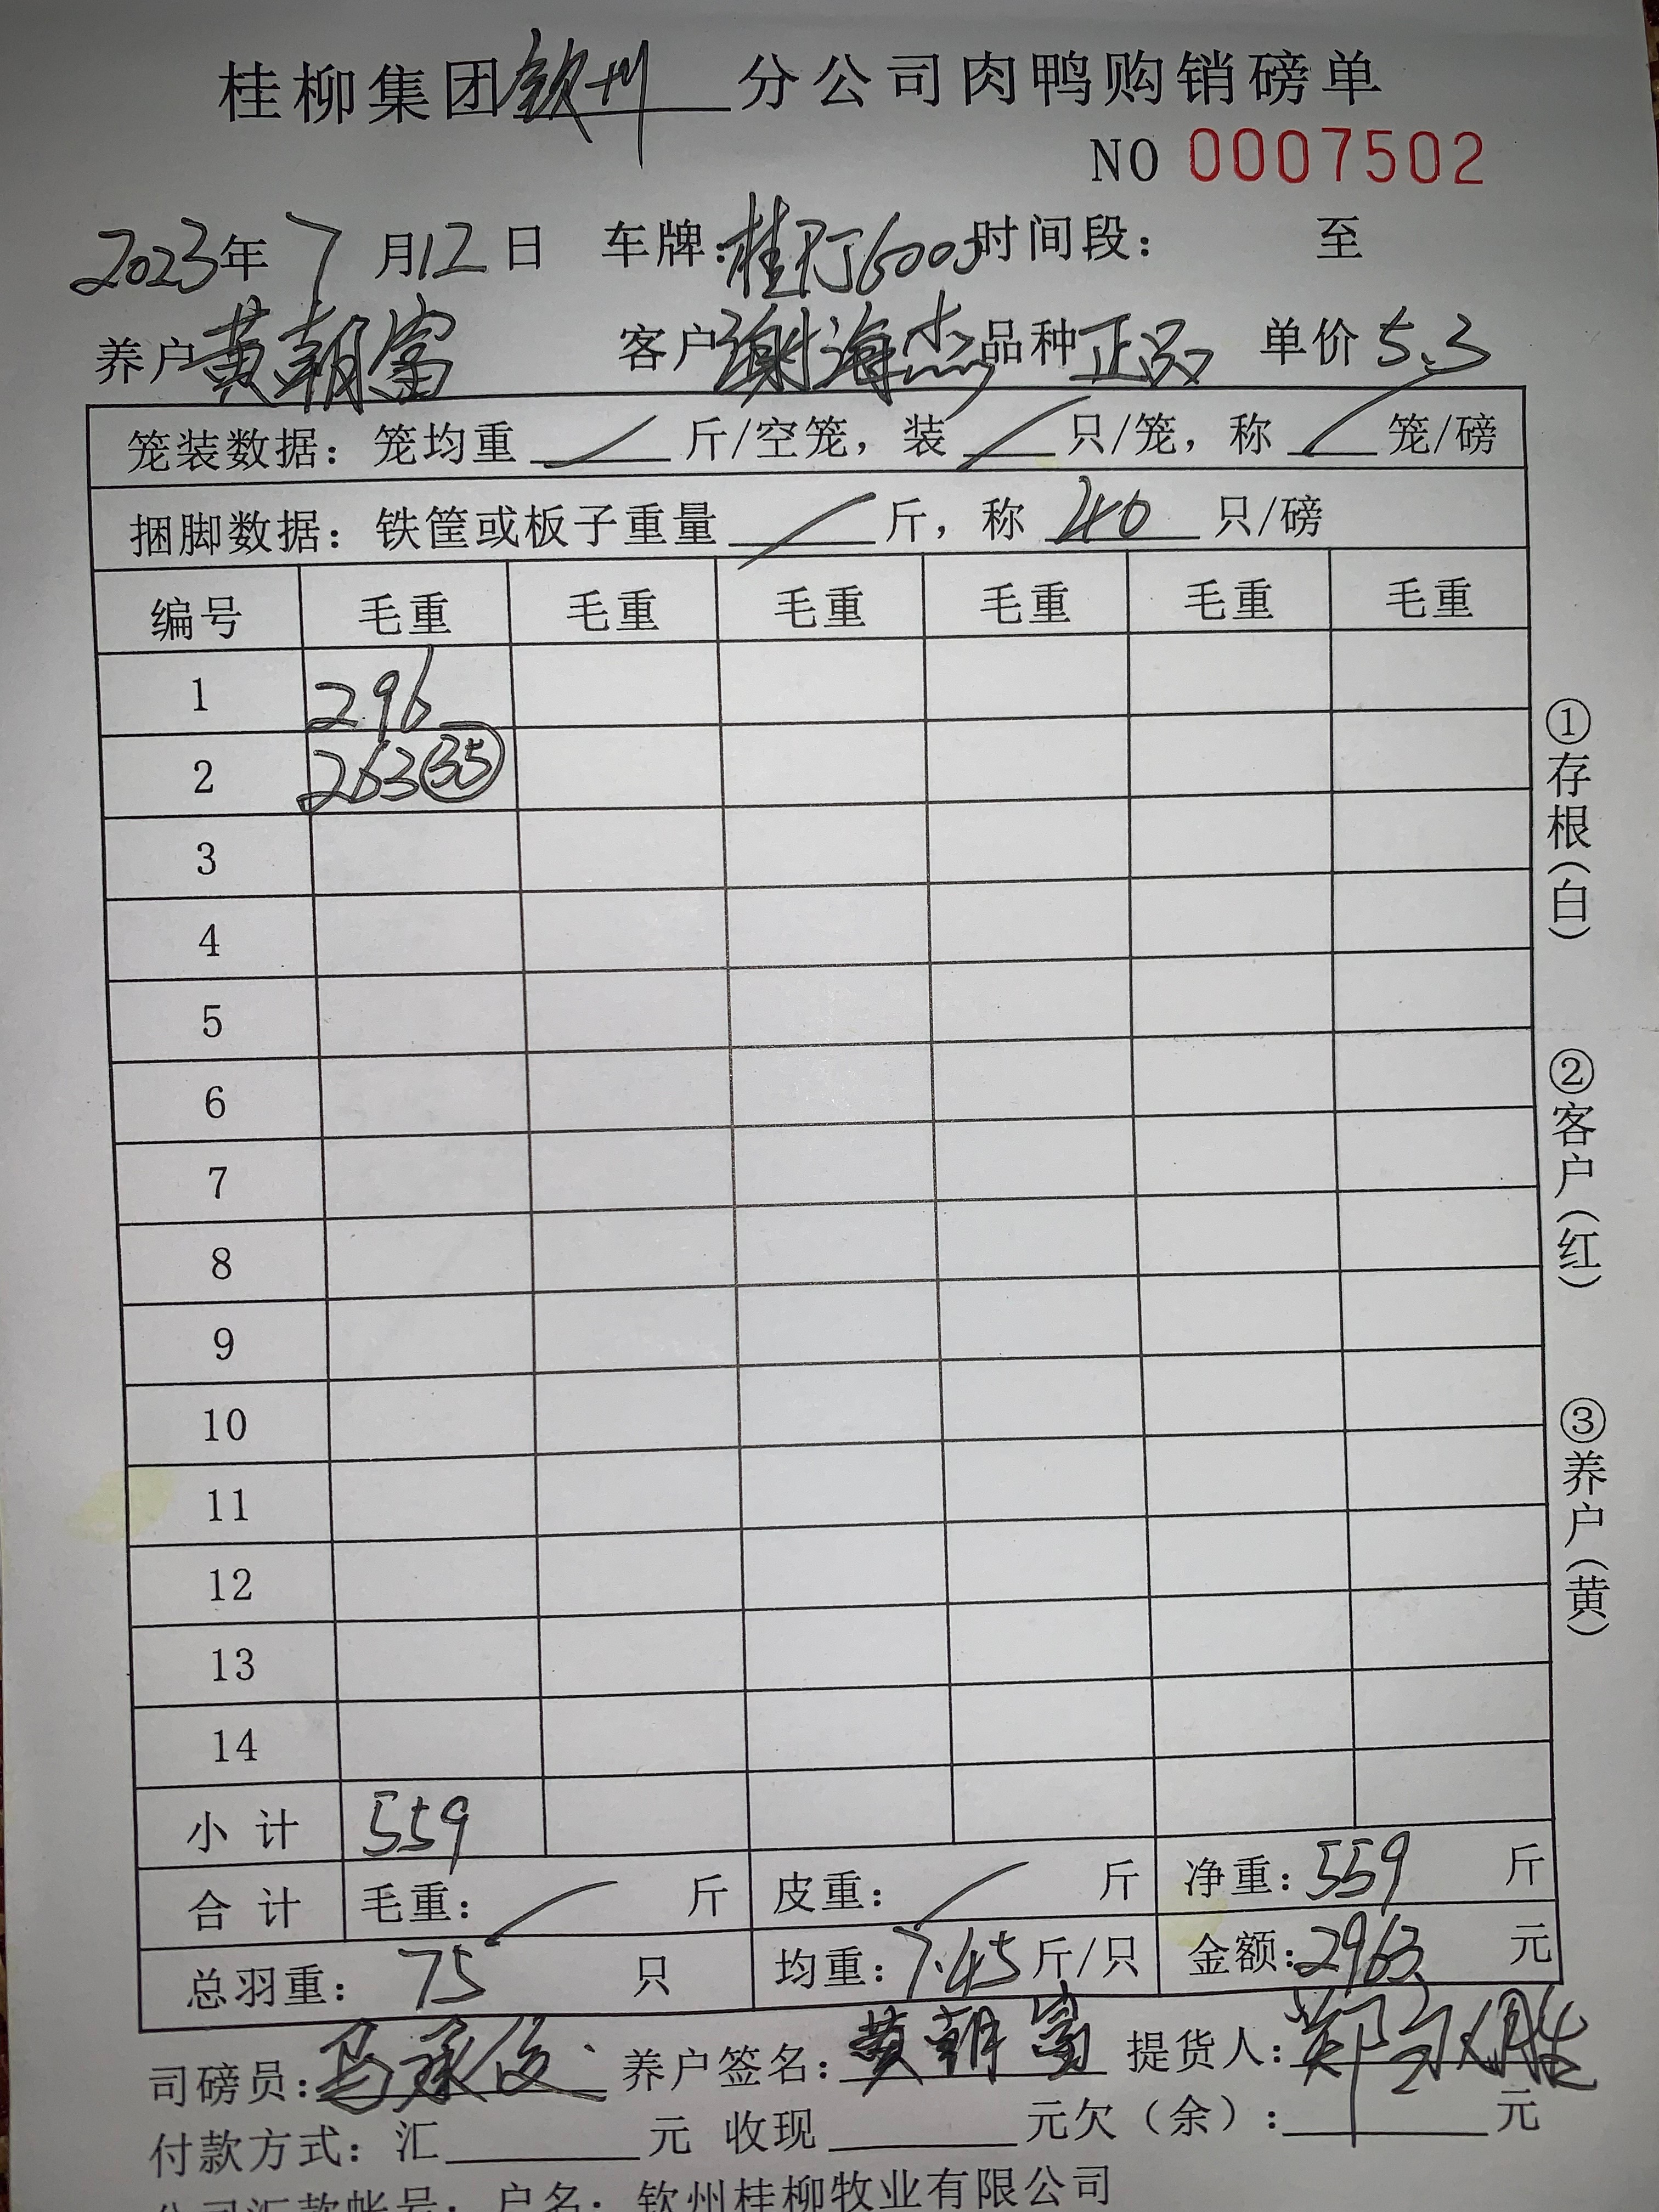 桂柳集团钦州分公司肉鸭购销磅单
NO 0007502
2023年7月12日 车牌: 时间段: 至
养户黄朝富 客户谢海杰 品种正品 单价5.3
笼装数据: 笼均重 / 斤/空笼, 装 / 只/笼, 称 / 笼/磅
捆脚数据: 铁筐或板子重量 / 斤, 称 40 只/磅
编号 毛重 毛重 毛重 毛重 毛重 毛重
1 296
2 263 35
3
4
5
6
7
8
9
10
11
12
13
14
小计 559
合计 毛重: / 斤 皮重: / 斤 净重: 559 斤
总羽重: 75 只 均重: 7.45 斤/只 金额: 2963 元
司磅员: 养户签名: 黄朝富 提货人:
付款方式: 汇 元 收现 元欠(余): 元
公司汇款帐号: 户名: 钦州桂柳牧业有限公司
①存根(白)
②客户(红)
③养户(黄)